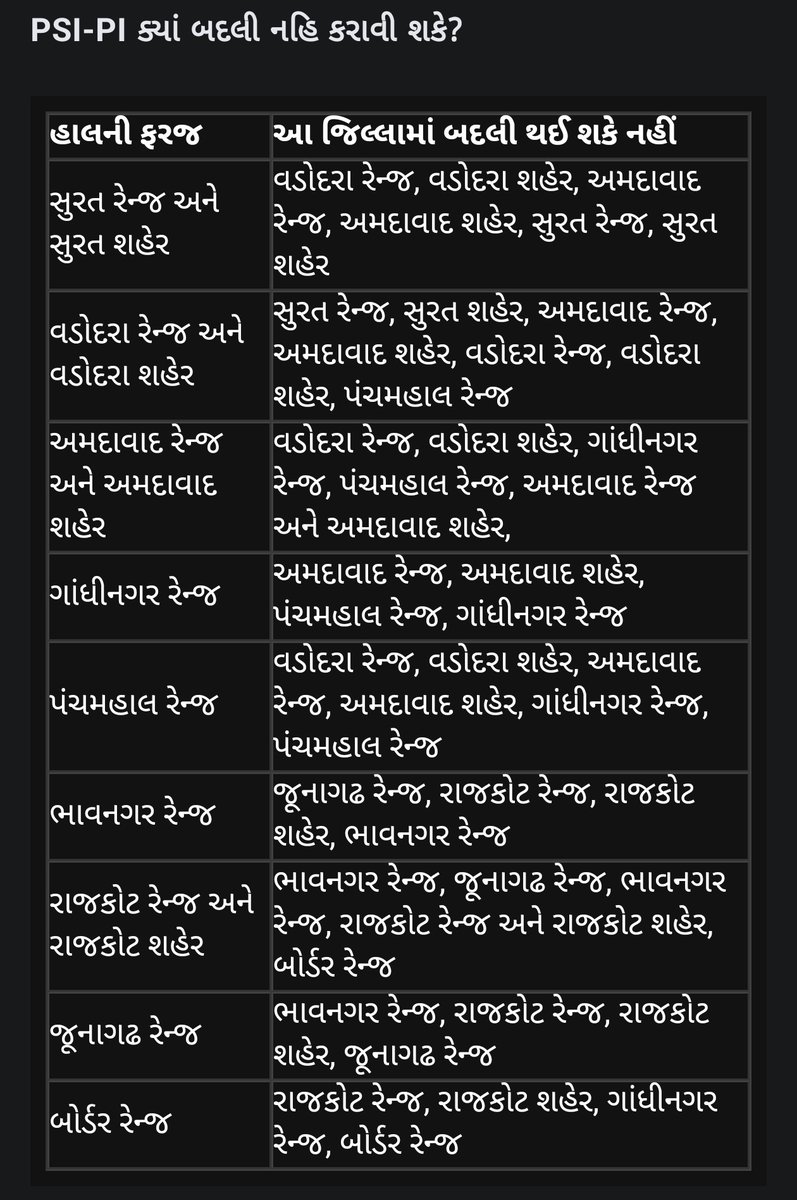 PSI-PI ક્યાં બદલી નહિ કરાવી શકે?
હાલની ફરજ
આ જિલ્લામાં બદલી થઈ શકે નહીં
સુરત રેન્જ અને
સુરત શહેર
વડોદરા રેન્જ, વડોદરા શહેર, અમદાવાદ
રેન્જ, અમદાવાદ શહેર, સુરત રેન્જ, સુરત
શહેર
વડોદરા રેન્જ અને
વડોદરા શહેર
સુરત રેન્જ, સુરત શહેર, અમદાવાદ રેન્જ,
અમદાવાદ શહેર, વડોદરા રેન્જ, વડોદરા
શહેર, પંચમહાલ રેન્જ
અમદાવાદ રેન્જ
અને અમદાવાદ
શહેર
વડોદરા રેન્જ, વડોદરા શહેર, ગાંધીનગર
રેન્જ, પંચમહાલ રેન્જ, અમદાવાદ રેન્જ
અને અમદાવાદ શહેર,
ગાંધીનગર રેન્જ
અમદાવાદ રેન્જ, અમદાવાદ શહેર,
પંચમહાલ રેન્જ, ગાંધીનગર રેન્જ
પંચમહાલ રેન્જ
વડોદરા રેન્જ, વડોદરા શહેર, અમદાવાદ
રેન્જ, અમદાવાદ શહેર, ગાંધીનગર રેન્જ,
પંચમહાલ રેન્જ
ભાવનગર રેન્જ
જૂનાગઢ રેન્જ, રાજકોટ રેન્જ, રાજકોટ
શહેર, ભાવનગર રેન્જ
રાજકોટ રેન્જ અને
રાજકોટ શહેર
ભાવનગર રેન્જ, જૂનાગઢ રેન્જ, ભાવનગર
રેન્જ, રાજકોટ રેન્જ અને રાજકોટ શહેર,
બોર્ડર રેન્જ
જૂનાગઢ રેન્જ
ભાવનગર રેન્જ, રાજકોટ રેન્જ, રાજકોટ
શહેર, જૂનાગઢ રેન્જ
બોર્ડર રેન્જ
રાજકોટ રેન્જ, રાજકોટ શહેર, ગાંધીનગર
રેન્જ, બોર્ડર રેન્જ